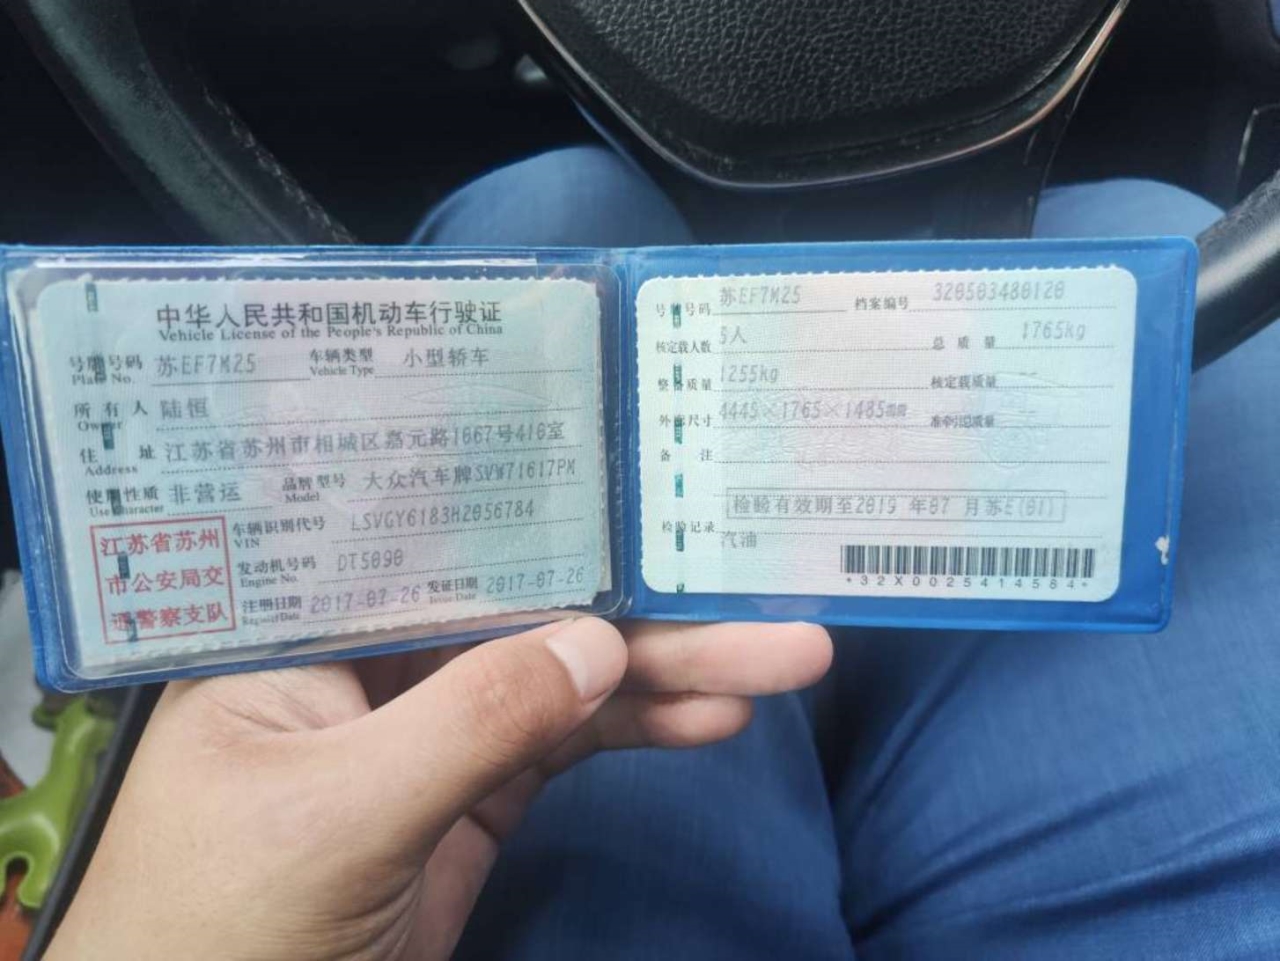 中华人民共和国机动车行驶证
Vehicle License of the People's Republic of China
号牌号码 苏EF7M25 车辆类型 小型轿车
Plate No. Vehicle Type
所有人 陆恒
Owner
住址 江苏省苏州市相城区嘉元路1667号416室
Address
使用性质 非营运 品牌型号 大众汽车牌SVW71617PM
Use Character Model
江苏省苏州
市公安局交
通警察支队
车辆识别代号 LSVGY6183H2056784
VIN
发动机号码 DT5090
Engine No.
注册日期 2017-07-26 发证日期 2017-07-26
Register Date Issue Date
号牌号码 苏EF7M25 档案编号 320503480120
核定载人数 5人 总质量 1765kg
整备质量 1255kg 核定载质量 --
外廓尺寸 4445×1765×1485mm 准牵引总质量 --
备注
检验有效期至2019 年07 月苏E(01)
检验记录
汽油
*32X0025414584*